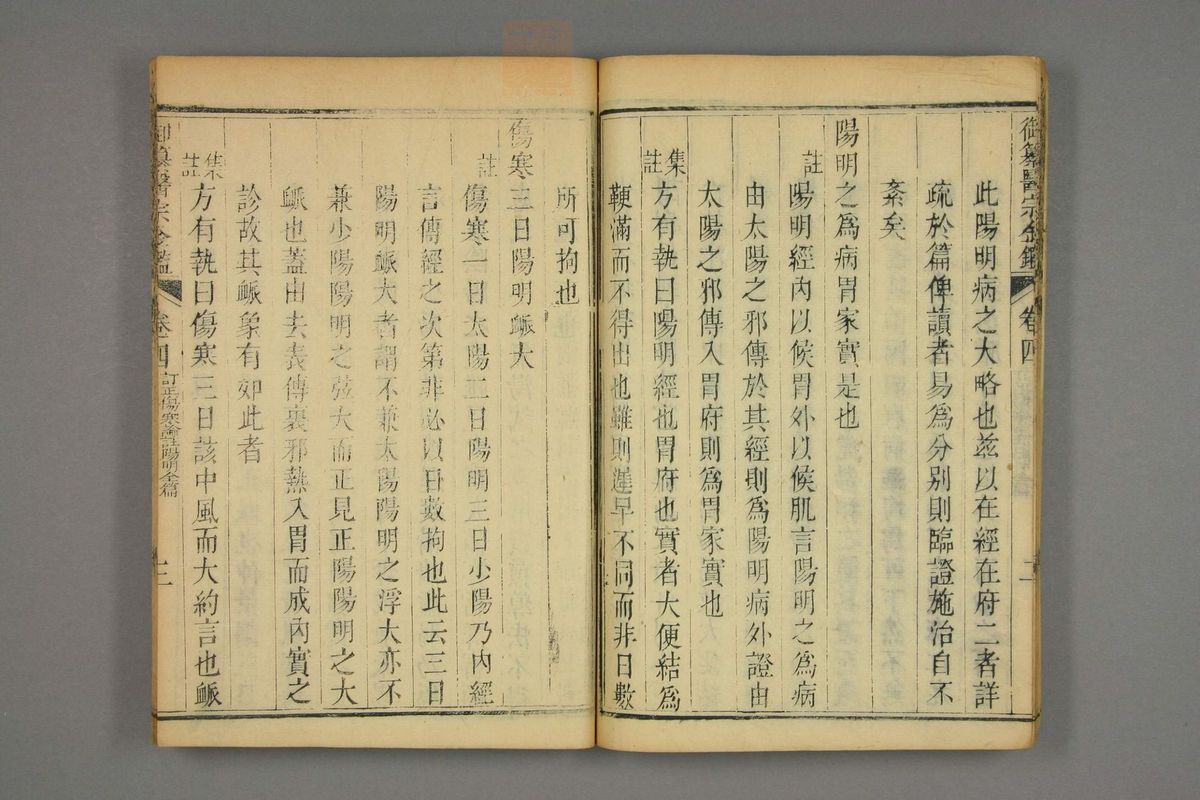 御纂醫宗金鑑 卷四
此陽明病之大略也茲以在經在府二者詳
疏於篇俾讀者易為分别則臨證施治自不
紊矣
陽明之為病胃家實是也
註 陽明經內以候胃外以候肌言陽明之為病
由太陽之邪傳於其經則為陽明病外證由
太陽之邪傳入胃府則為胃家實也
集註 方有執曰陽明經也胃府也實者大便結為
鞕滿而不得出也雖則遲早不同而非日數
所可拘也
傷寒三日陽明脈大
註 傷寒一日太陽二日陽明三日少陽乃內經
言傳經之次第非必以日數拘也此云三日
陽明脈大者謂不兼太陽陽明之浮大亦不
兼少陽陽明之弦大而正見正陽陽明之大
脈也蓋由去表傳裏邪熱入胃而成內實之
診故其脈象有如此者
集註 方有執曰傷寒三日該中風而大約言也脈
御纂醫宗金鑑 卷四 訂正傷寒論註陽明全篇